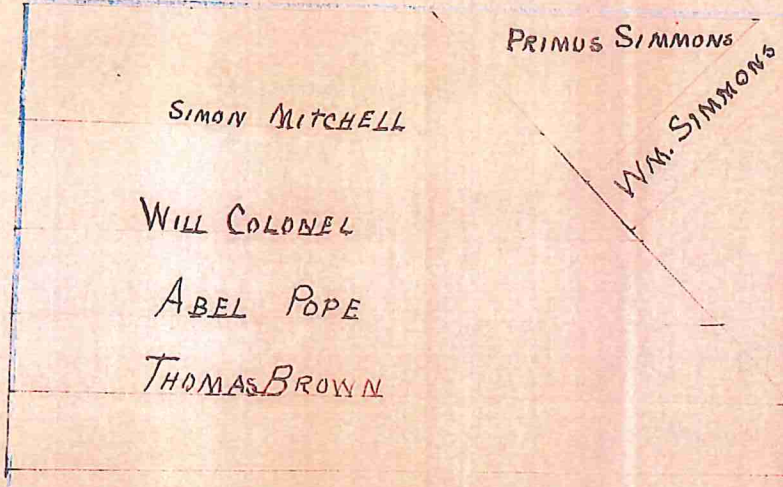 PRIMUS SIMMONS
WM. SIMMONS
SIMON MITCHELL
WILL COLONEL
ABEL POPE
THOMAS BROWN